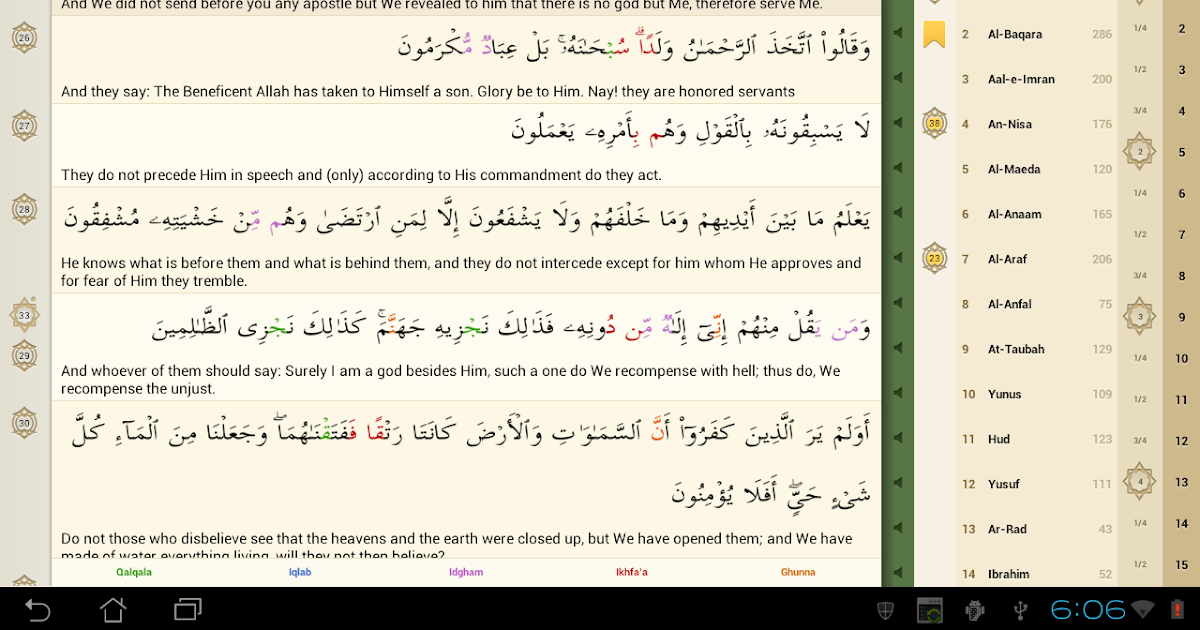 And We did not send before you any apostle but We revealed to him that there is no god but Me, therefore serve Me.
26
وَقَالُوا۟ ٱتَّخَذَ ٱلرَّحْمَـٰنُ وَلَدًا ۗ سُبْحَـٰنَهُۥ ۚ بَلْ عِبَادٌ مُّكْرَمُونَ
And they say: The Beneficent Allah has taken to Himself a son. Glory be to Him. Nay! they are honored servants
27
لَا يَسْبِقُونَهُۥ بِٱلْقَوْلِ وَهُم بِأَمْرِهِۦ يَعْمَلُونَ
They do not precede Him in speech and (only) according to His commandment do they act.
28
يَعْلَمُ مَا بَيْنَ أَيْدِيهِمْ وَمَا خَلْفَهُمْ وَلَا يَشْفَعُونَ إِلَّا لِمَنِ ٱرْتَضَىٰ وَهُم مِّنْ خَشْيَتِهِۦ مُشْفِقُونَ
He knows what is before them and what is behind them, and they do not intercede except for him whom He approves and
for fear of Him they tremble.
33
29
وَمَن يَقُلْ مِنْهُمْ إِنِّىٓ إِلَـٰهٌ مِّن دُونِهِۦ فَذَٰلِكَ نَجْزِيهِ جَهَنَّمَ ۚ كَذَٰلِكَ نَجْزِى ٱلظَّـٰلِمِينَ
And whoever of them should say: Surely I am a god besides Him, such a one do We recompense with hell; thus do, We
recompense the unjust.
30
أَوَلَمْ يَرَ ٱلَّذِينَ كَفَرُوٓا۟ أَنَّ ٱلسَّمَـٰوَٰتِ وَٱلْأَرْضَ كَانَتَا رَتْقًا فَفَتَقْنَـٰهُمَا ۖ وَجَعَلْنَا مِنَ ٱلْمَآءِ كُلَّ
شَىْءٍ حَىٍّ ۖ أَفَلَا يُؤْمِنُونَ
Do not those who disbelieve see that the heavens and the earth were closed up, but We have opened them; and We have
made of water everything living, will they not then believe?
Qalqala Iqlab Idgham Ikhfa'a Ghunna
2 Al-Baqara 286
3 Aal-e-Imran 200
38
4 An-Nisa 176
5 Al-Maeda 120
6 Al-Anaam 165
23
7 Al-Araf 206
8 Al-Anfal 75
9 At-Taubah 129
10 Yunus 109
11 Hud 123
12 Yusuf 111
13 Ar-Rad 43
14 Ibrahim 52
1/4
1/2
3/4
2
1/4
1/2
3/4
3
1/4
1/2
3/4
4
1/4
1/2
2
3
4
5
6
7
8
9
10
11
12
13
14
15
6:06